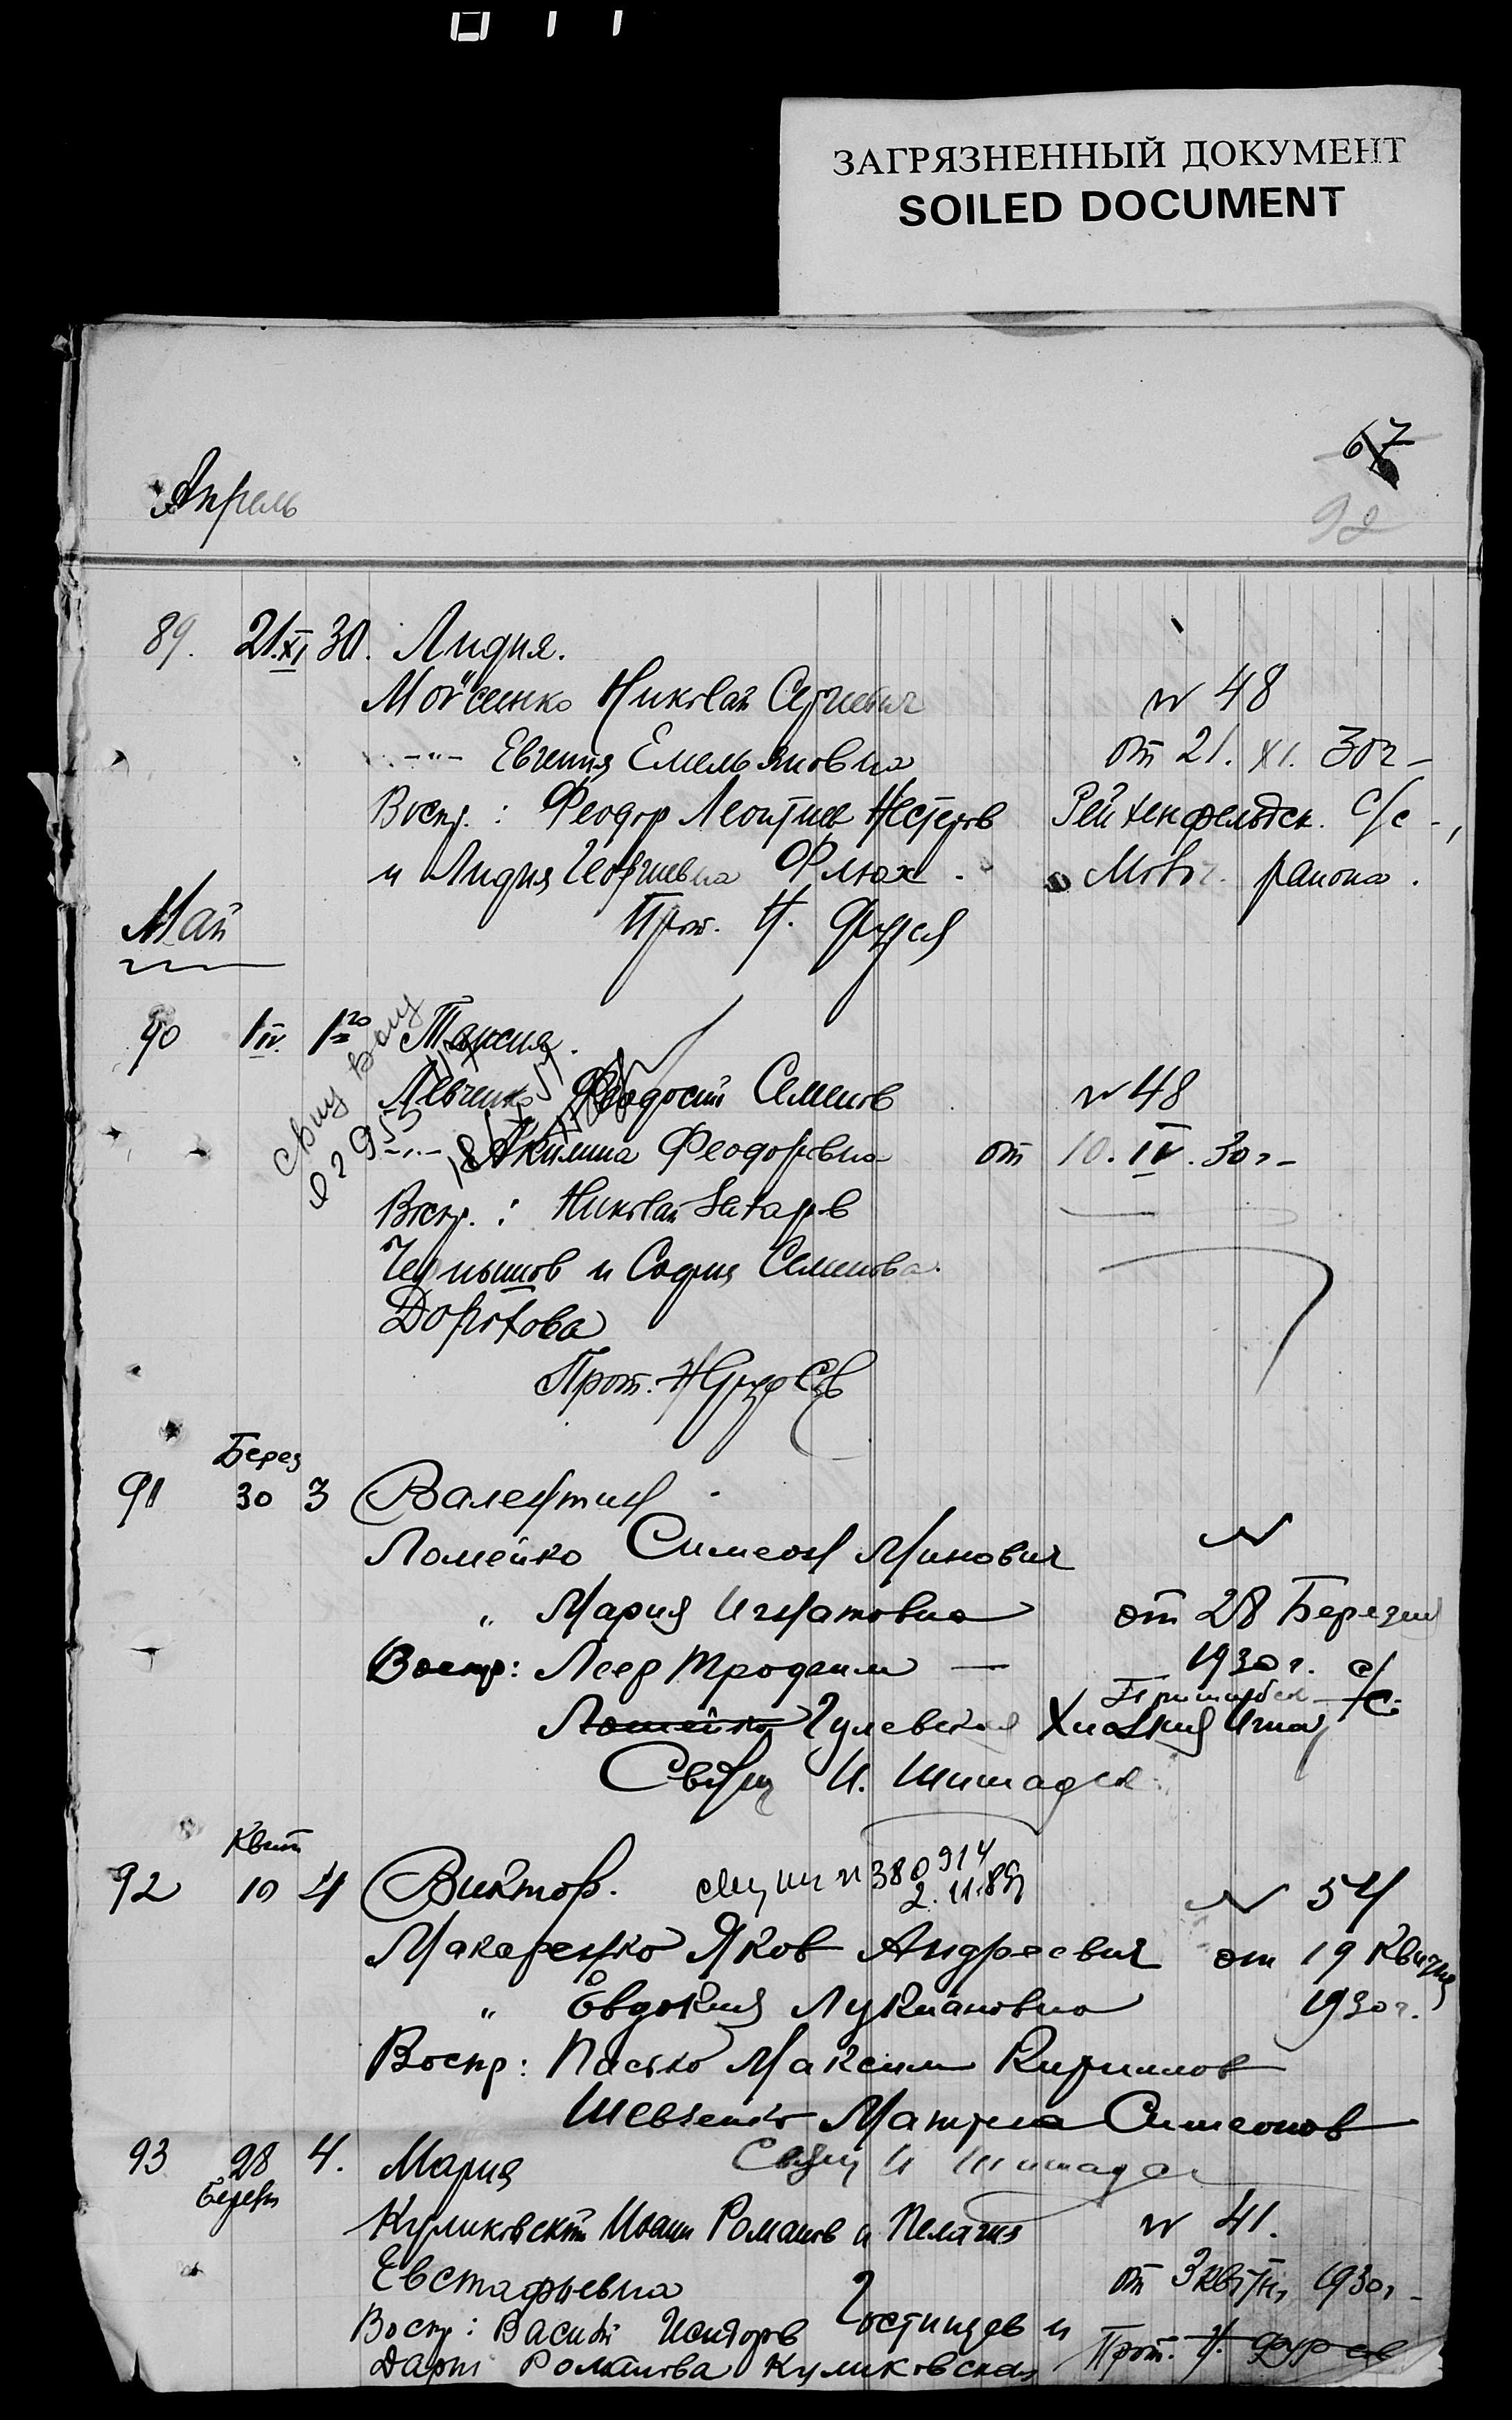 ЗАГРЯЗНЕННЫЙ ДОКУМЕНТ
SOILED DOCUMENT
67
92
Апрель
89. 21.XI 30. Лидия.
Мойсеенко Николай Сергиевич № 48
-"- Евгения Емельяновна от 21. XI. 30 г –
Воспр. : Феодор Леонтиев Нестеров Рейхенфельдск. С/с –,
и Лидия Георгиевна Флюх. района.
Май
Прот. Н.
90 1 IV. 1го Таисия.
Левченко Феодосий Семенов № 48
-"- Акилина Феодоровна от 10. IV. 30 г –
Воспр. : Николай Захаров
Чернышов и София Семенова
Дорохова
Прот. Н
Берез
91 30 3 Валентин
Ломейко Симеон Минович №
" Мария Игнатовна от 28 Березня
Воспр: Леер Трофим — 1930 г. с/с.
Ломейко Гулевская
Свящ И.
Квит
92 10 4 Виктор. № 380914 № 54
2. 11.89
Макаренко Яков Андреевич от 19 Квитня
" Евдокия Лукиановна 1930 г.
Воспр: Пасько Максим Кириллов
Шевченко Матрена Симеонов
93 28 4. Мария Свящ И
Березн
Куликовский Иоанн Романов и Пелагия № 41.
Евстафьевна от 3 квітн, 1930 г –
Воспр: Василий Исидоров Гостищев и
Дария Романова Куликовская Прот. Н.